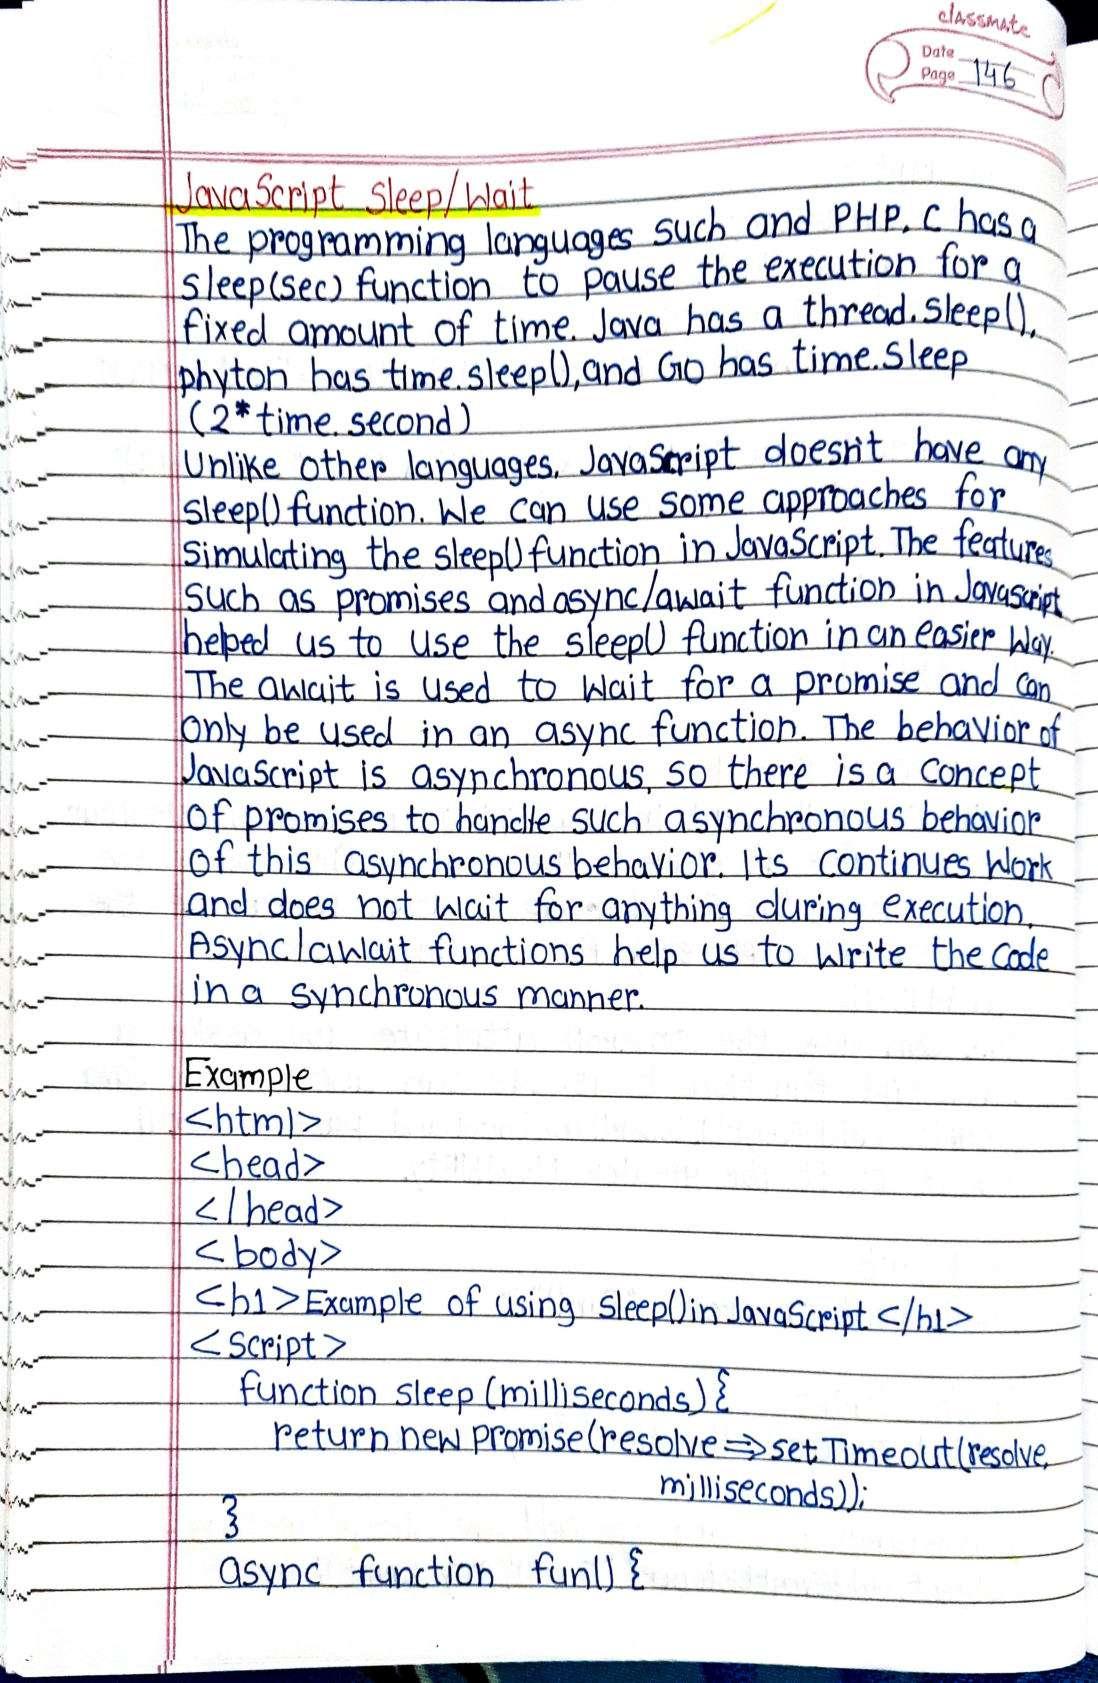 classmate
Date
Page 146
JavaScript Sleep/Wait
The programming languages such and PHP, C has a
sleep(sec) function to pause the execution for a
fixed amount of time. Java has a thread.sleep(),
phyton has time.sleep(), and Go has time.Sleep
(2*time.second)
Unlike other languages, JavaScript doesn't have any
sleep() function. We can use some approaches for
simulating the sleep() function in JavaScript. The features
such as promises and async/await function in Javascript
helped us to use the sleep() function in an easier way.
The await is used to wait for a promise and can
only be used in an async function. The behavior of
JavaScript is asynchronous, so there is a concept
of promises to handle such asynchronous behavior
of this asynchronous behavior. Its continues work
and does not wait for anything during execution.
Async/await functions help us to write the code
in a synchronous manner.
Example
<html>
<head>
</head>
<body>
<h1>Example of using sleep() in JavaScript </h1>
<script>
function sleep (milliseconds) {
return new promise(resolve => setTimeout(resolve,
milliseconds));
}
async function fun() {